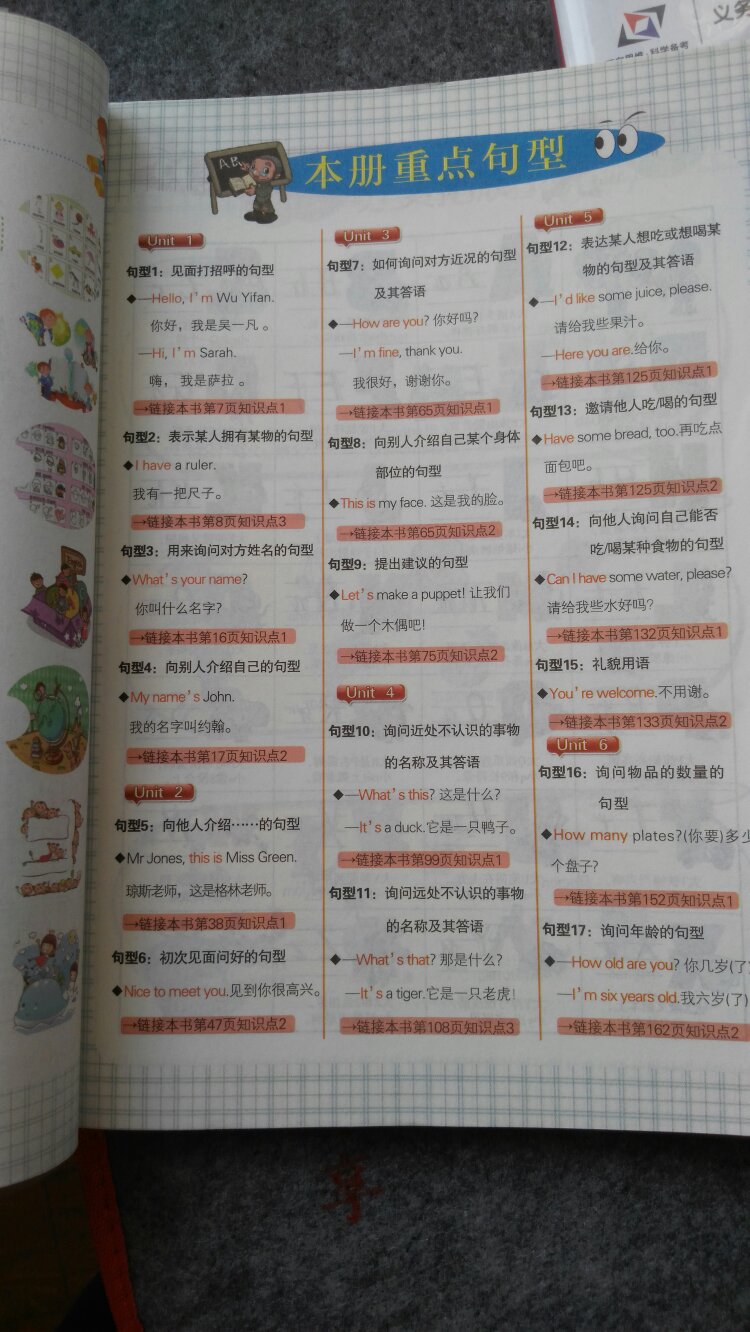 义务
科学备考
AB
本册重点句型
Unit 1
句型1：见面打招呼的句型
◆—Hello, I'm Wu Yifan.
你好，我是吴一凡 。
—Hi, I'm Sarah.
嗨， 我是萨拉 。
→链接本书第7页知识点1
句型2：表示某人拥有某物的句型
◆I have a ruler.
我有一把尺子。
→链接本书第8页知识点3
句型3：用来询问对方姓名的句型
◆What's your name?
你叫什么名字?
→链接本书第16页知识点1
句型4：向别人介绍自己的句型
◆My name's John.
我的名字叫约翰。
→链接本书第17页知识点2
Unit 2
句型5：向他人介绍……的句型
◆Mr Jones, this is Miss Green.
琼斯老师，这是格林老师。
→链接本书第38页知识点1
句型6：初次见面问好的句型
◆Nice to meet you.见到你很高兴。
→链接本书第47页知识点2
Unit 3
句型7：如何询问对方近况的句型
及其答语
◆—How are you? 你好吗?
—I'm fine, thank you.
我很好，谢谢你。
→链接本书第65页知识点1
句型8：向别人介绍自己某个身体
部位的句型
◆This is my face. 这是我的脸。
→链接本书第65页知识点2
句型9：提出建议的句型
◆Let's make a puppet! 让我们
做一个木偶吧!
→链接本书第75页知识点2
Unit 4
句型10：询问近处不认识的事物
的名称及其答语
◆—What's this? 这是什么?
—It's a duck.它是一只鸭子。
→链接本书第99页知识点1
句型11：询问远处不认识的事物
的名称及其答语
◆—What's that? 那是什么?
—It's a tiger.它是一只老虎!
→链接本书第108页知识点3
Unit 5
句型12：表达某人想吃或想喝某
物的句型及其答语
◆—I'd like some juice, please.
请给我些果汁。
—Here you are.给你。
→链接本书第125页知识点1
句型13：邀请他人吃/喝的句型
◆Have some bread, too.再吃点
面包吧。
→链接本书第125页知识点2
句型14：向他人询问自己能否
吃/喝某种食物的句型
◆Can I have some water, please?
请给我些水好吗?
→链接本书第132页知识点1
句型15：礼貌用语
◆You're welcome.不用谢。
→链接本书第133页知识点2
Unit 6
句型16：询问物品的数量的
句型
◆How many plates?(你要)多少
个盘子?
→链接本书第152页知识点1
句型17：询问年龄的句型
◆—How old are you? 你几岁(了
—I'm six years old.我六岁(了)
→链接本书第162页知识点2
享